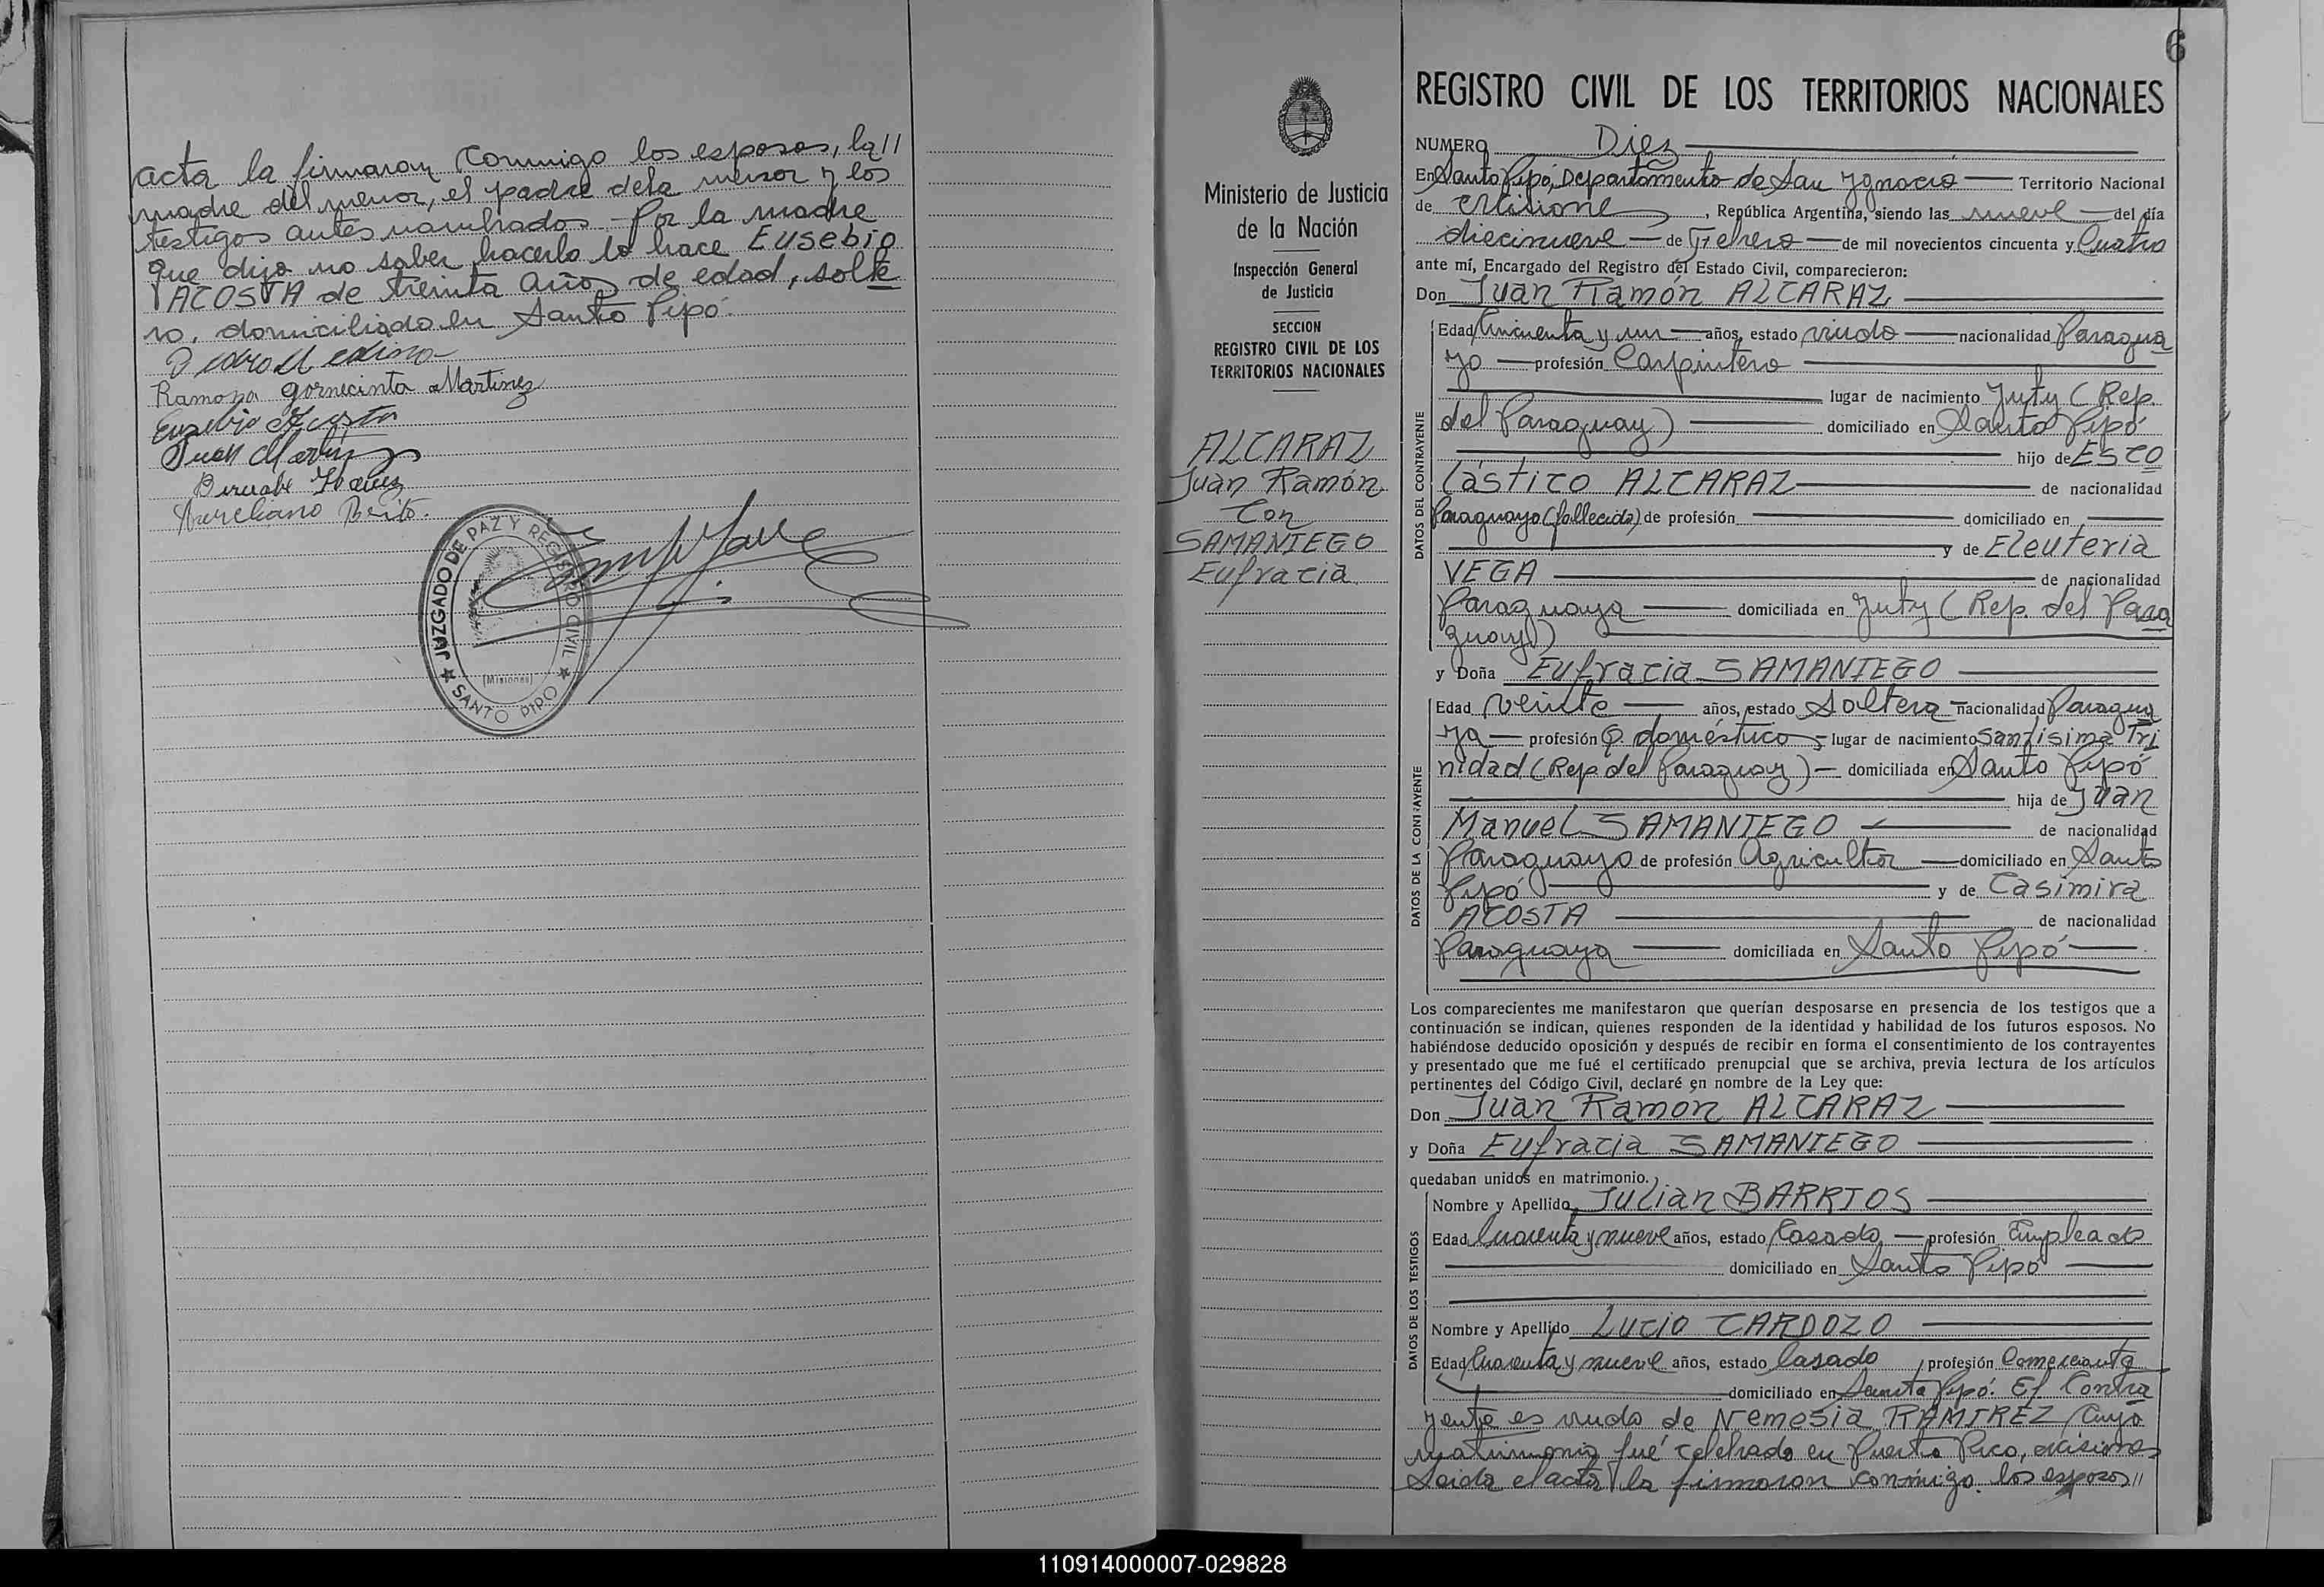 acta la firmaron conmigo los esposos, la //
madre del menor, el padre dela menor y los
testigos antes nombrados. - Por la madre
que dijo no saber hacerlo lo hace EUSEBIO
ACOSTA de treinta años de edad, solte
ro, domiciliado en Santo Pipó.
Ramona Martinez
Eusebio Acosta
Juan Martinez
Aureliano Brito.
JUZGADO DE PAZ Y REGISTRO CIVIL
(Misiones)
SANTO PIPO
6
Ministerio de Justicia
de la Nación
Inspección General
de Justicia
SECCION
REGISTRO CIVIL DE LOS
TERRITORIOS NACIONALES
ALCARAZ
Juan Ramón
Con
SAMANIEGO
Eufracia
REGISTRO CIVIL DE LOS TERRITORIOS NACIONALES
NUMERO Diez
En Santo Pipó, Departamento de San Ygnacio Territorio Nacional
de Misiones, República Argentina, siendo las nueve del día
diecinueve de Febrero de mil novecientos cincuenta y Cuatro
ante mí, Encargado del Registro del Estado Civil, comparecieron:
Don Juan Ramón ALCARAZ
DATOS DEL CONTRAYENTE
Edad Cincuenta y un años, estado viudo nacionalidad Paragua
yo profesión Carpintero
lugar de nacimiento Yuty (Rep.
del Paraguay) domiciliado en Santo Pipó
hijo de ESCO
lástico ALCARAZ de nacionalidad
Paraguayo (fallecido) de profesión domiciliado en
y de Eleuteria
VEGA de nacionalidad
Paraguaya domiciliada en Yuty (Rep. del Para
guay)
y Doña Eufracia SAMANIEGO
DATOS DE LA CONTRAYENTE
Edad veinte años, estado Soltera nacionalidad Paragua
ya profesión Q. doméstico lugar de nacimiento Santísima Tri
nidad (Rep. del Paraguay) domiciliada en Santo Pipó
hija de Juan
Manuel SAMANIEGO de nacionalidad
Paraguayo de profesión Agricultor domiciliado en Santo
Pipó y de Casimira
ACOSTA de nacionalidad
Paraguaya domiciliada en Santo Pipó
Los comparecientes me manifestaron que querían desposarse en presencia de los testigos que a
continuación se indican, quienes responden de la identidad y habilidad de los futuros esposos. No
habiéndose deducido oposición y después de recibir en forma el consentimiento de los contrayentes
y presentado que me fué el certificado prenupcial que se archiva, previa lectura de los artículos
pertinentes del Código Civil, declaré en nombre de la Ley que:
Don Juan Ramón ALCARAZ
y Doña Eufracia SAMANIEGO
quedaban unidos en matrimonio.
DATOS DE LOS TESTIGOS
Nombre y Apellido Julian BARRIOS
Edad Cuarenta y nueve años, estado Casado profesión Empleado
domiciliado en Santo Pipó
Nombre y Apellido Lucio CARDOZO
Edad Cuarenta y nueve años, estado Casado profesión Comerciante
domiciliado en Santo Pipó. El Contra
yente es viudo de Nemesia RAMIREZ Cuyo
matrimonio fué celebrado en Puerto Rico, Misiones
Leida el acta la firmaron conmigo los esposos //
110914000007-029828